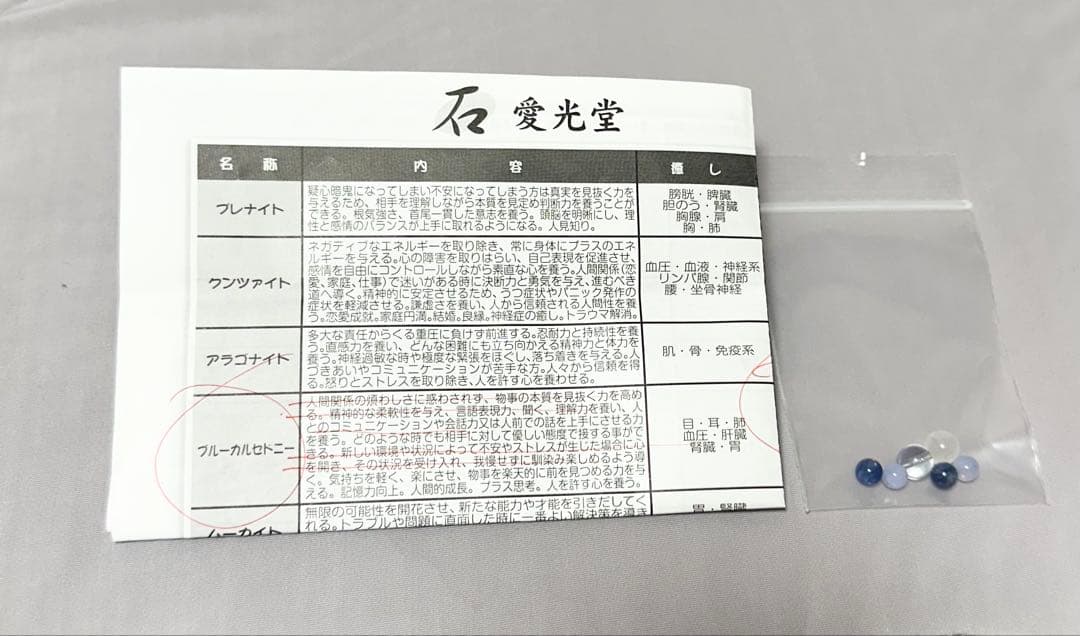 石 愛光堂
名称 内容 癒し
プレナイト
疑心暗鬼になってしまい不安になってしまう方は真実を見抜く力を
与えるため、相手を理解しながら本質を見定め判断力を養うことが
できる。根気強さ、首尾一貫した意志を養う。頭脳を明晰にし、理
性と感情のバランスが上手に取れるようになる。人見知り。
膀胱・脾臓
胆のう・腎臓
胸腺・肩
胸・肺
クンツァイト
ネガティブなエネルギーを取り除き、常に身体にプラスのエネ
ルギーを与える。心の障害を取りはらい、自己表現を促進させ、
感情を自由にコントロールしながら素直な心を養う。人間関係(恋
愛、家庭、仕事)で迷いがある時に決断力と勇気を与え、進むべき
道へ導く。精神的に安定させるため、うつ症状やパニック発作の
症状を軽減させる。謙虚さを養い、人から信頼される人間性を養
う。恋愛成就。家庭円満。結婚。良縁。神経症の癒し。トラウマ解消。
血圧・血液・神経系
リンパ腺・関節
腰・坐骨神経
アラゴナイト
多大な責任からくる重圧に負けず前進する。忍耐力と持続性を養
う。直感力を養い、どんな困難にも立ち向かえる精神力と体力を
養う。神経過敏な時や極度な緊張をほぐし、落ち着きを与える。人
づきあいやコミュニケーションが苦手な方。人々から信頼を得
る。怒りとストレスを取り除き、人を許す心を養わせる。
肌・骨・免疫系
ブルーカルセドニー
人間関係の煩わしさに惑わされず、物事の本質を見抜く力を高め
る。精神的な柔軟性を与え、言語表現力、聞く、理解力を養い、人
とのコミュニケーションや会話力又は人前での話を上手にさせる力
を養う。どのような時でも相手に対して優しい態度で接する事がで
きる。新しい環境や状況によって不安やストレスが生じた場合に心
を開き、その状況を受け入れ、我慢せずに馴染み楽しめるよう導
く。気持ちを軽く、楽にさせ、物事を楽天的に前を見つめる力を与
える。記憶力向上。人間的成長。プラス思考。人を許す心を養う。
目・耳・肺
血圧・肝臓
腎臓・胃
ムーカイト
無限の可能性を開花させ、新たな能力や才能を引きだしてく
れる。トラブルや問題に直面した時に一番よい解決策を導き
胃・腎臓